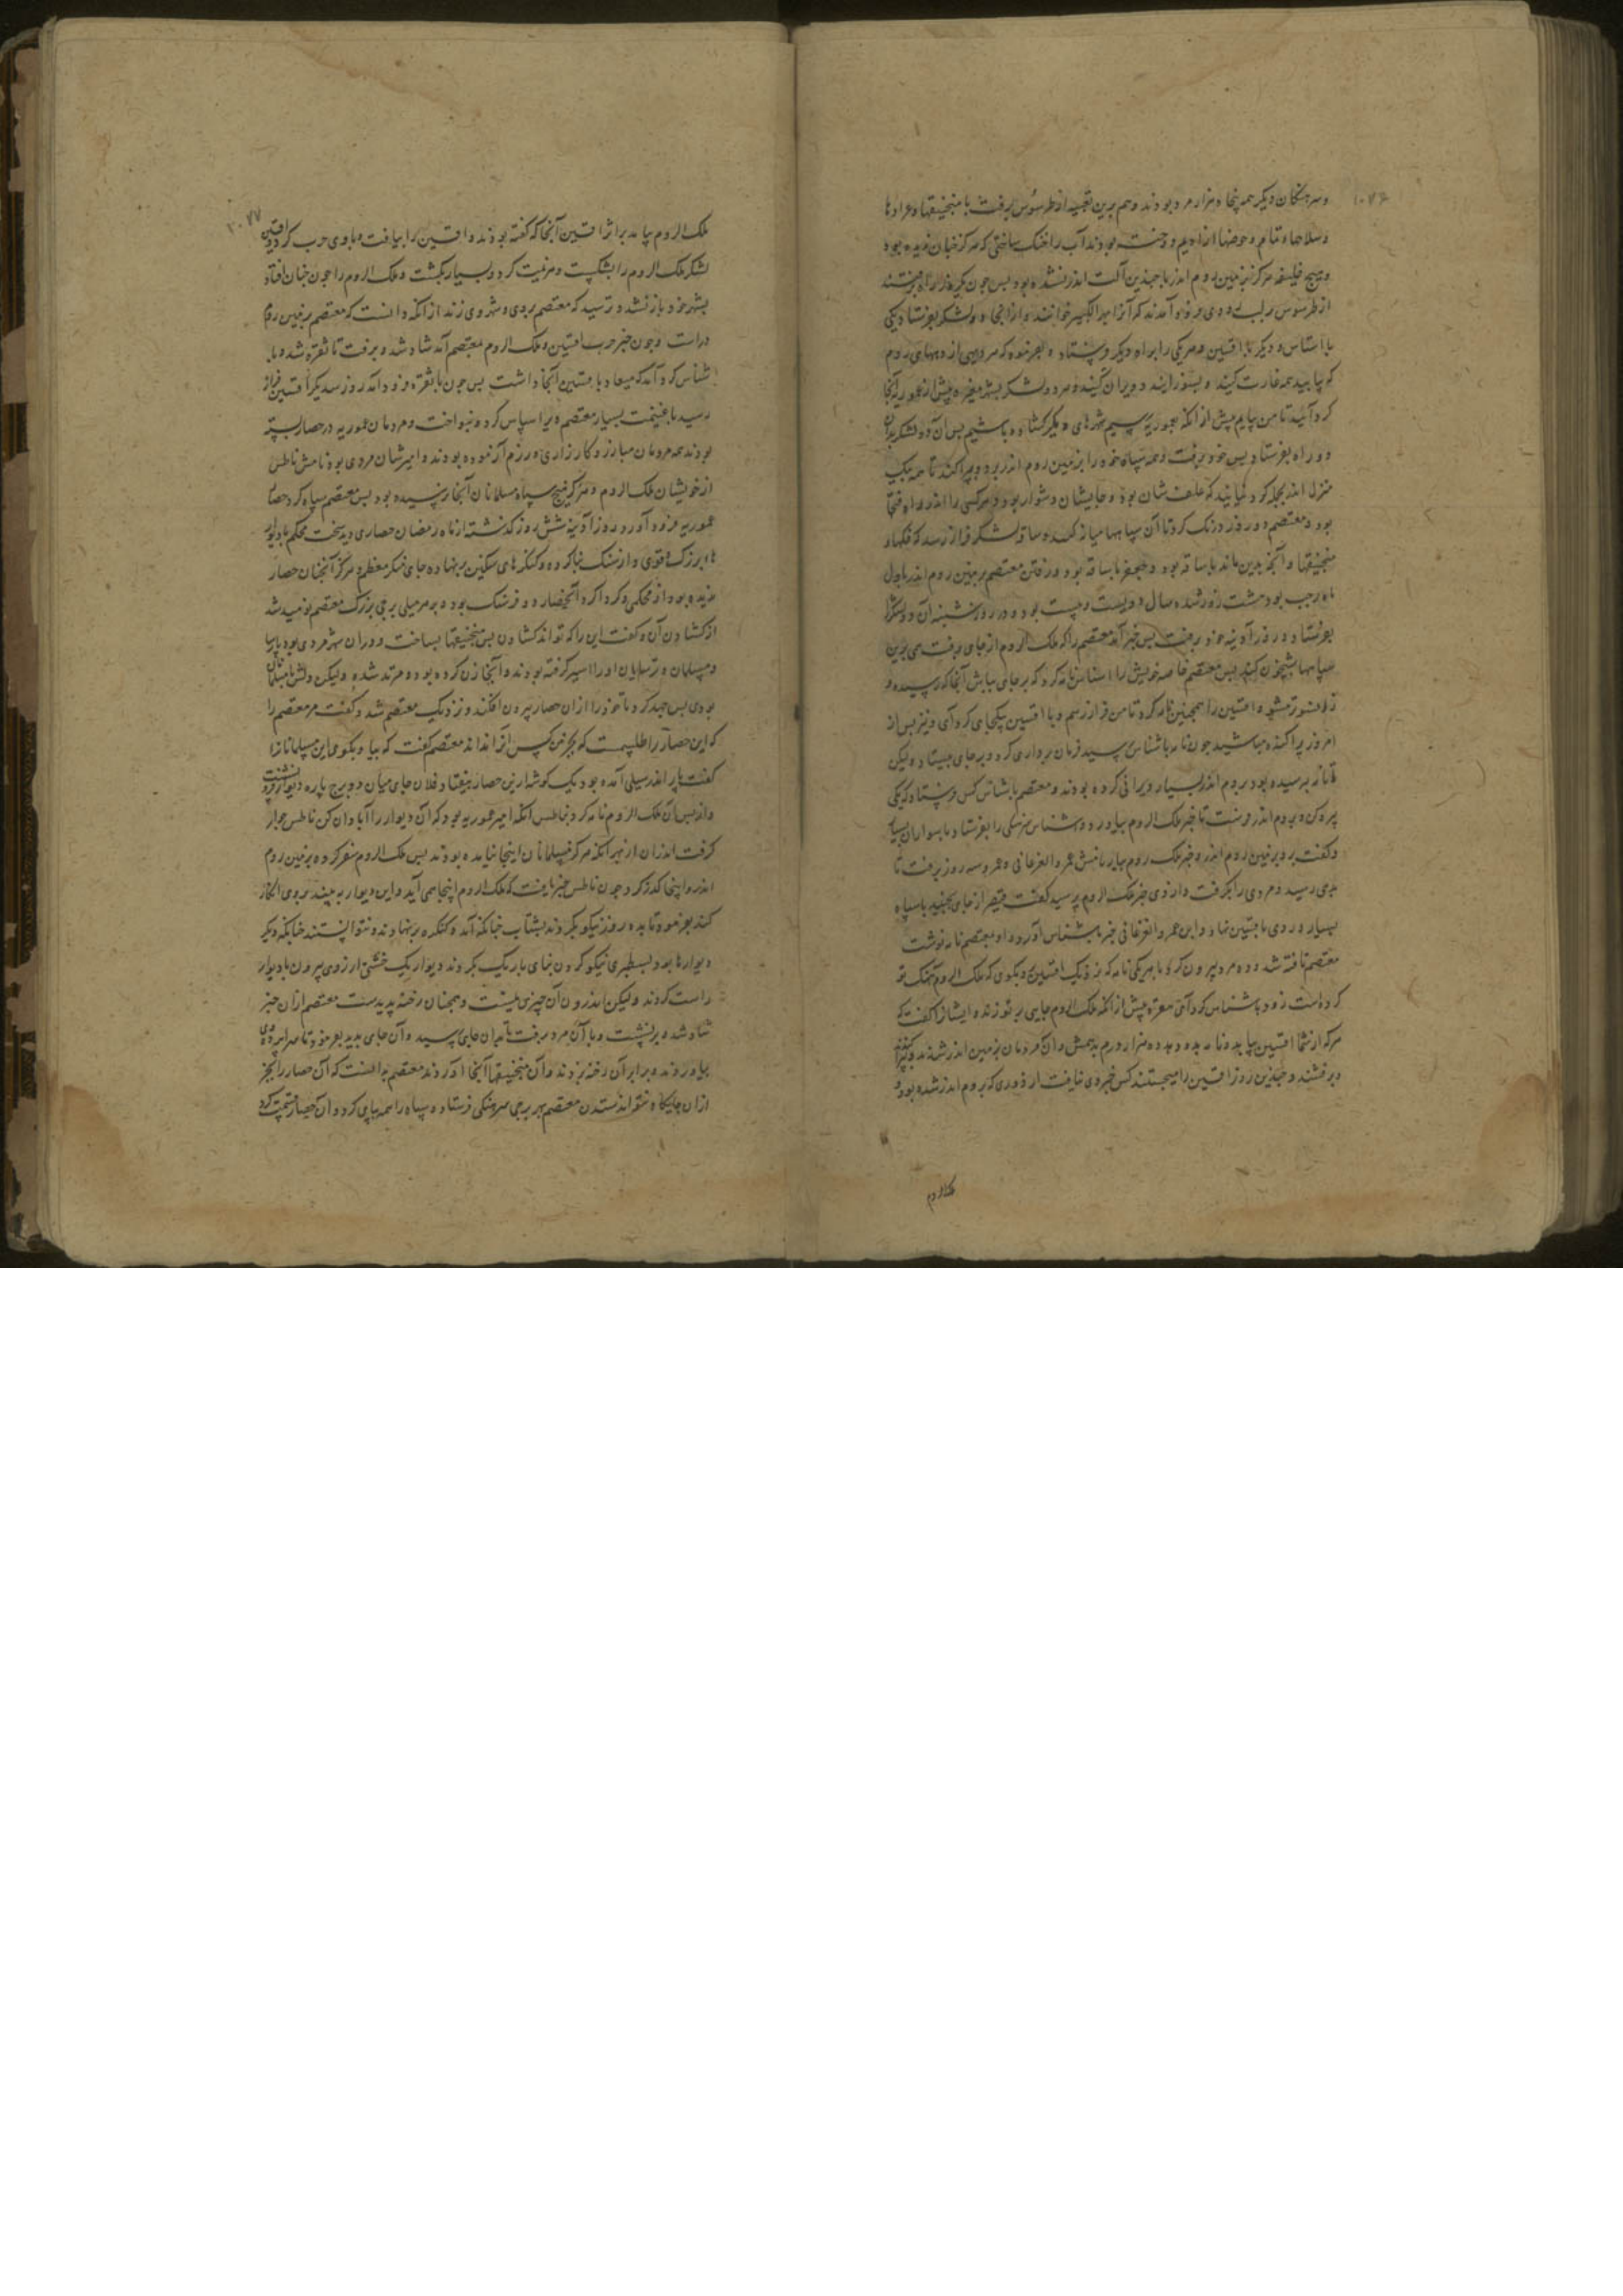 ۱۰۷۶
و سرهنکان دیکر همه پنجاه هزار مرد بودند و هم برین تعبیه از طرسوس برفت با منجنیقها و عرادها
و سلاحها و تمام و حوضها از ادیم و آب را خنک ساختی که هرکز جنان ندیده بود
و هیچ خلیفه هرکز بزمین روم اندر با جندین آلت اندر نشده بود بس جون
از طرسوس بلب رودی فرود آمدند که آنرا خوانند و از انجا دو لشکر بفرستاد یکی
با اشناس و دیکر با افشین و هر یکی را براه دیکر فرستاد و بفرمود که هر دیهی از دیههای روم
که بیابید همه غارت کنید و بسوزانید و ویران کنید و هر دو لشکر بیش از عموریه آنجا
کرد آئید تا من بیایم بیش از آنکه بعموریه رسیم شهرهای دیکر کشاده باشیم بس آن دو لشکر بدان
دو راه بفرستاد بس خود برفت و همه سپاه خود را بزمین روم اندر برد و بپراکند تا همه بیک
منزل اندر کرد نیایند که علف شان بود و جایشان دشوار بود و هر کسی را اندر راه
بود و معتصم دو روز درنک کرد تا آن سپاهها میاز ساقه لشکر فراز رسد که
منجنیقها و آنجه بدین ماند با ساقه بود و جعفر با ساقه بود و رفتن معتصم بزمین روم اندر باول
ماه رجب بود هشت روز شده سال دویست و بیست بود و در روز شنبه آن دو لشکر را
بفرستاد و روز آدینه خود برفت بس خبر آمد معتصم را که ملک الروم از جای برفت برین
سپاهها شبخون کند بس معتصم خاصه خویش را اشناس نامه کرد که بر جای بباش آنجا که رسیده و
زاستر مشو و افشین را همجنین نامه کرد تا من فراز رسم و با افشین بیکجای کرد آی و نیز بس از
امروز پراکنده مباشید جون نامه باشناس رسید فرمان برداری کرد و بر جای بیستاد ولیکن
تا نامه برسیده بود بروم اندر بسیار ویرانی کرده بودند و معتصم باشناس کس فرستاد که یکی
بیرون کن و بروم اندر فرست تا خبر ملک الروم بیاورد و اشناس سرهنکی را بفرستاد با سواران بسیار
و کفت برو بزمین روم اندر و خبر ملک روم بیار نامش عمرو الفرغانی و عمرو سه روز برفت تا
بدهی رسید و مردی را بکرفت و از وی خبر ملک الروم پرسید کفت قیصر از جای بجنبید با سپاه
بسیار و روی بافشین نهاد و این عمرو الفرغانی خبر باشناس آورد و او بمعتصم نامه نوشت
معتصم تافته شد و ده مرد بیرون کرد با هر یکی نامه که نزدیک افشین و بکوی که ملک الروم آهنک تو
کرده است زود باشناس کرد آی بیش از آنکه ملک الروم جایی بر تو زند و ایشانرا کفت که
هر که از شما افشین بیابد و نامه بدو دهد ده هزار درم بدهمش و آن مردمان بزمین اندر شدند و بپراکندند
و برفتند و جندین روز افشین را میجستند کس خبر وی نیافت از دوری که بروم اندر شده بود و
ملک الروم
۱۰۷۷
ملک الروم بیامد بر اثر افشین آنجا که کفته بودند و افشین را بیافت و با وی حرب کرد و افشین
لشکر ملک الروم را بشکست و هزیمت کرد و بسیار بکشت و ملک الروم را جون جنان افتاد
بشهر خود باز نشد و ترسید که معتصم بروی و شهر وی زند از آنکه دانست که معتصم بزمین روم
در است و جون خبر حرب افشین و ملک الروم بمعتصم آمد شاد شد و برفت تا نقره شد و با
اشناس کرد آمد که میعاد با افشین آنجا داشت بس جون با نقره فرود آمد روز سدیکر افشین فراز
رسید با غنیمت بسیار معتصم ویرا سپاس کرد و بنواخت و مردمان عموریه در حصار بسته
بودند همه مردمان مبارز و کارزاری و رزم آزموده بودند و امیرشان مردی بود نامش ناطس
از خویشان ملک الروم و هرکز هیچ سپاه مسلمانان آنجا نرسیده بود بس معتصم سپاه کرد حصار
عموریه فرود آورد روز آدینه شش روز کذشته از ماه رمضان حصاری دید سخت محکم با دیوار
ها بزرک و قوی و از سنک بنا کرده و کنکرهای سنکین بر نهاده جای منکر معظم و هرکز آنجنان حصار
ندیده بود از محکمی و کرداکرد آنحصار دو فرسنک بود و بر هر میلی برجی بزرک معتصم نومید شد
از کشادن آن و کفت این را که تواند کشادن بس منجنیقها بساخت و در آن شهر مردی بود پارسا
و مسلمان و ترسایان او را اسیر کرفته بودند و آنجا زن کرده بود و مرتد شده ولیکن دلش با مسلمانان
بودی بس جهد کرد تا خود را از ان حصار بیرون افکند و نزدیک معتصم شد و کفت مر معتصم را
که این حصار را طلسمیست که بجز من کس آنرا نداند معتصم کفت که بیا و بکوی این مسلمانانرا
کفت پار اندر سیلی آمده بود یک کوشه از این حصار بیفتاد فلان جای میان دو برج پاره دیوار فرو نشست
و از بس آن ملک الروم نامه کرد بناطس آنکه امیر عموریه بود که آن دیوار را آبادان کن ناطس خوار
کرفت اندر آن از بهر آنکه هرکز مسلمانان اینجا نیامده بودند بس ملک الروم سفر کرده بزمین روم
اندر و اینجا کذر کرد جون ناطس خبر یافت که ملک الروم اینجا همی آید و این دیوار به بیند بروی انکار
کند بفرمود تا بده روز نیکو بکردند بشتاب جنانکه آمد و کنکره بر نهادند و نتوانستند جنانکه دیکر
دیوارها بود بسطبری نیکو کردن بنای باریک بکردند دیوار یک خشتی از روی بیرون با دیوار
راست کردند ولیکن اندرون آن جیزی نیست و همجنان رخنه پدیدست معتصم از ان خبر
شاد شد و برنشست و با آن مرد برفت تا بدان جای رسید و آن جای بدید بفرمود تا سراپرده
بیاوردند و برابر آن رخنه بزدند و آن منجنیقها آنجا آوردند معتصم دانست که آن حصار را بجز
از ان جایکاه نتواند ستدن معتصم بهر برجی سرهنکی فرستاد و سپاه را همه بپای کرد و آن حصار قسمت کرد